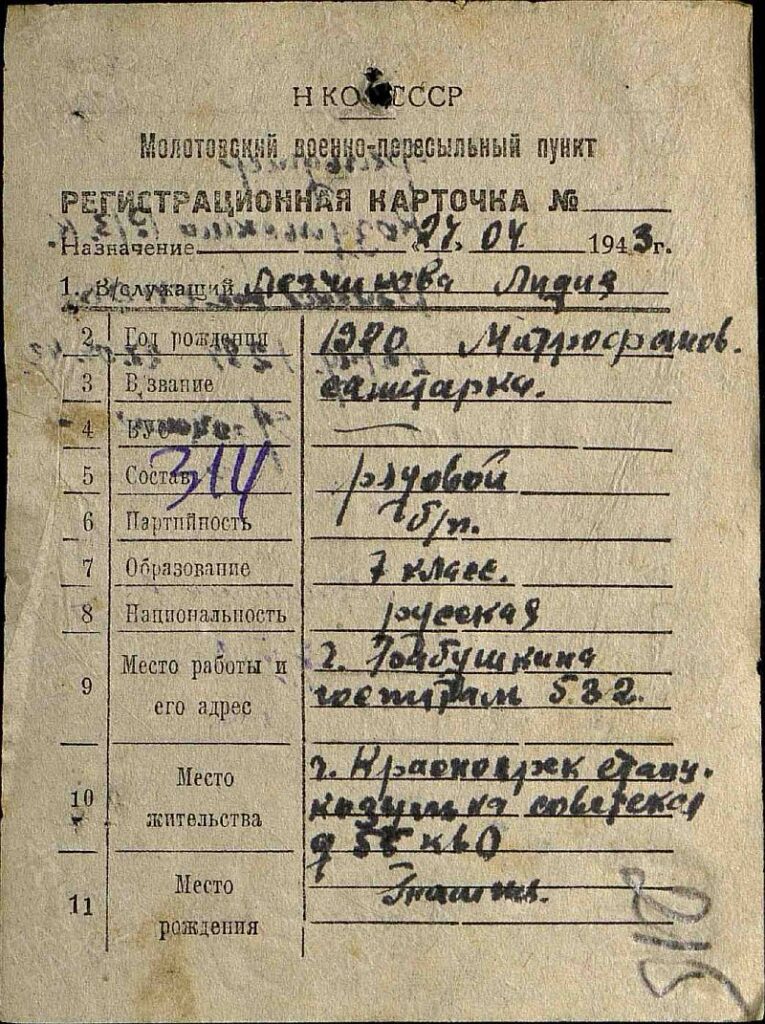 НКО СССР
Молотовский военно-пересыльный пункт
РЕГИСТРАЦИОННАЯ КАРТОЧКА №
Назначение „27. 04 1943г.
1. В/служащий Лидия
2 Год рождения 1920 Митрофанов.
3 В/звание санитарка.
4 ВУС —
5 Состав рядовой
314
6 Партийность б/п.
7 Образование 7 класс.
8 Национальность русская
9 Место работы и его адрес г. Бабушкина
госпиталь 532.
10 Место жительства г. Красноярск
советская
д 56 кв 0
11 Место рождения